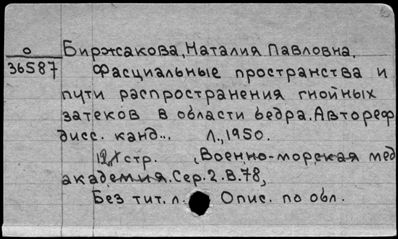 О
36587
Биржакова, Наталия Павловна.
Фасциальные пространства и
пути распространения гнойных
затеков в области бедра. Автореф
дисс. канд... Л., 1950.
стр. Военно-морская мед
академия. Сер. 2. В. 78,
Без тит. л. Опис. по обл.